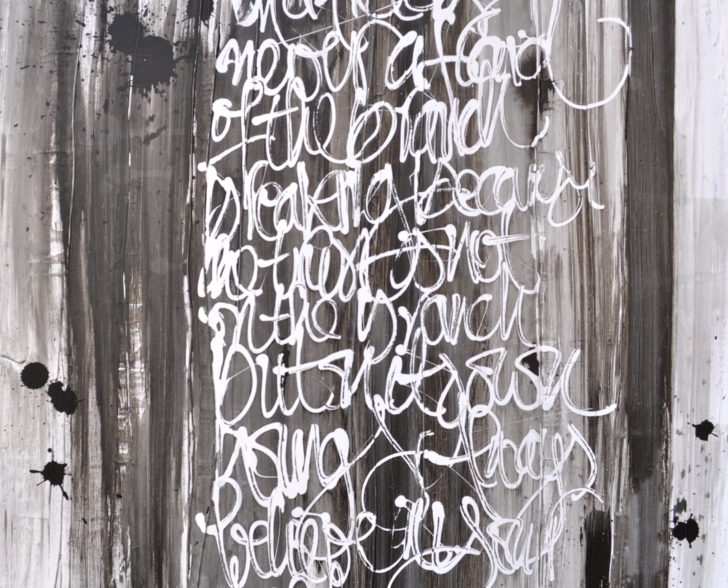 never afraid
of the branch
breaking because
trust is not
on the branch
but on its own
wing Always
believe in your